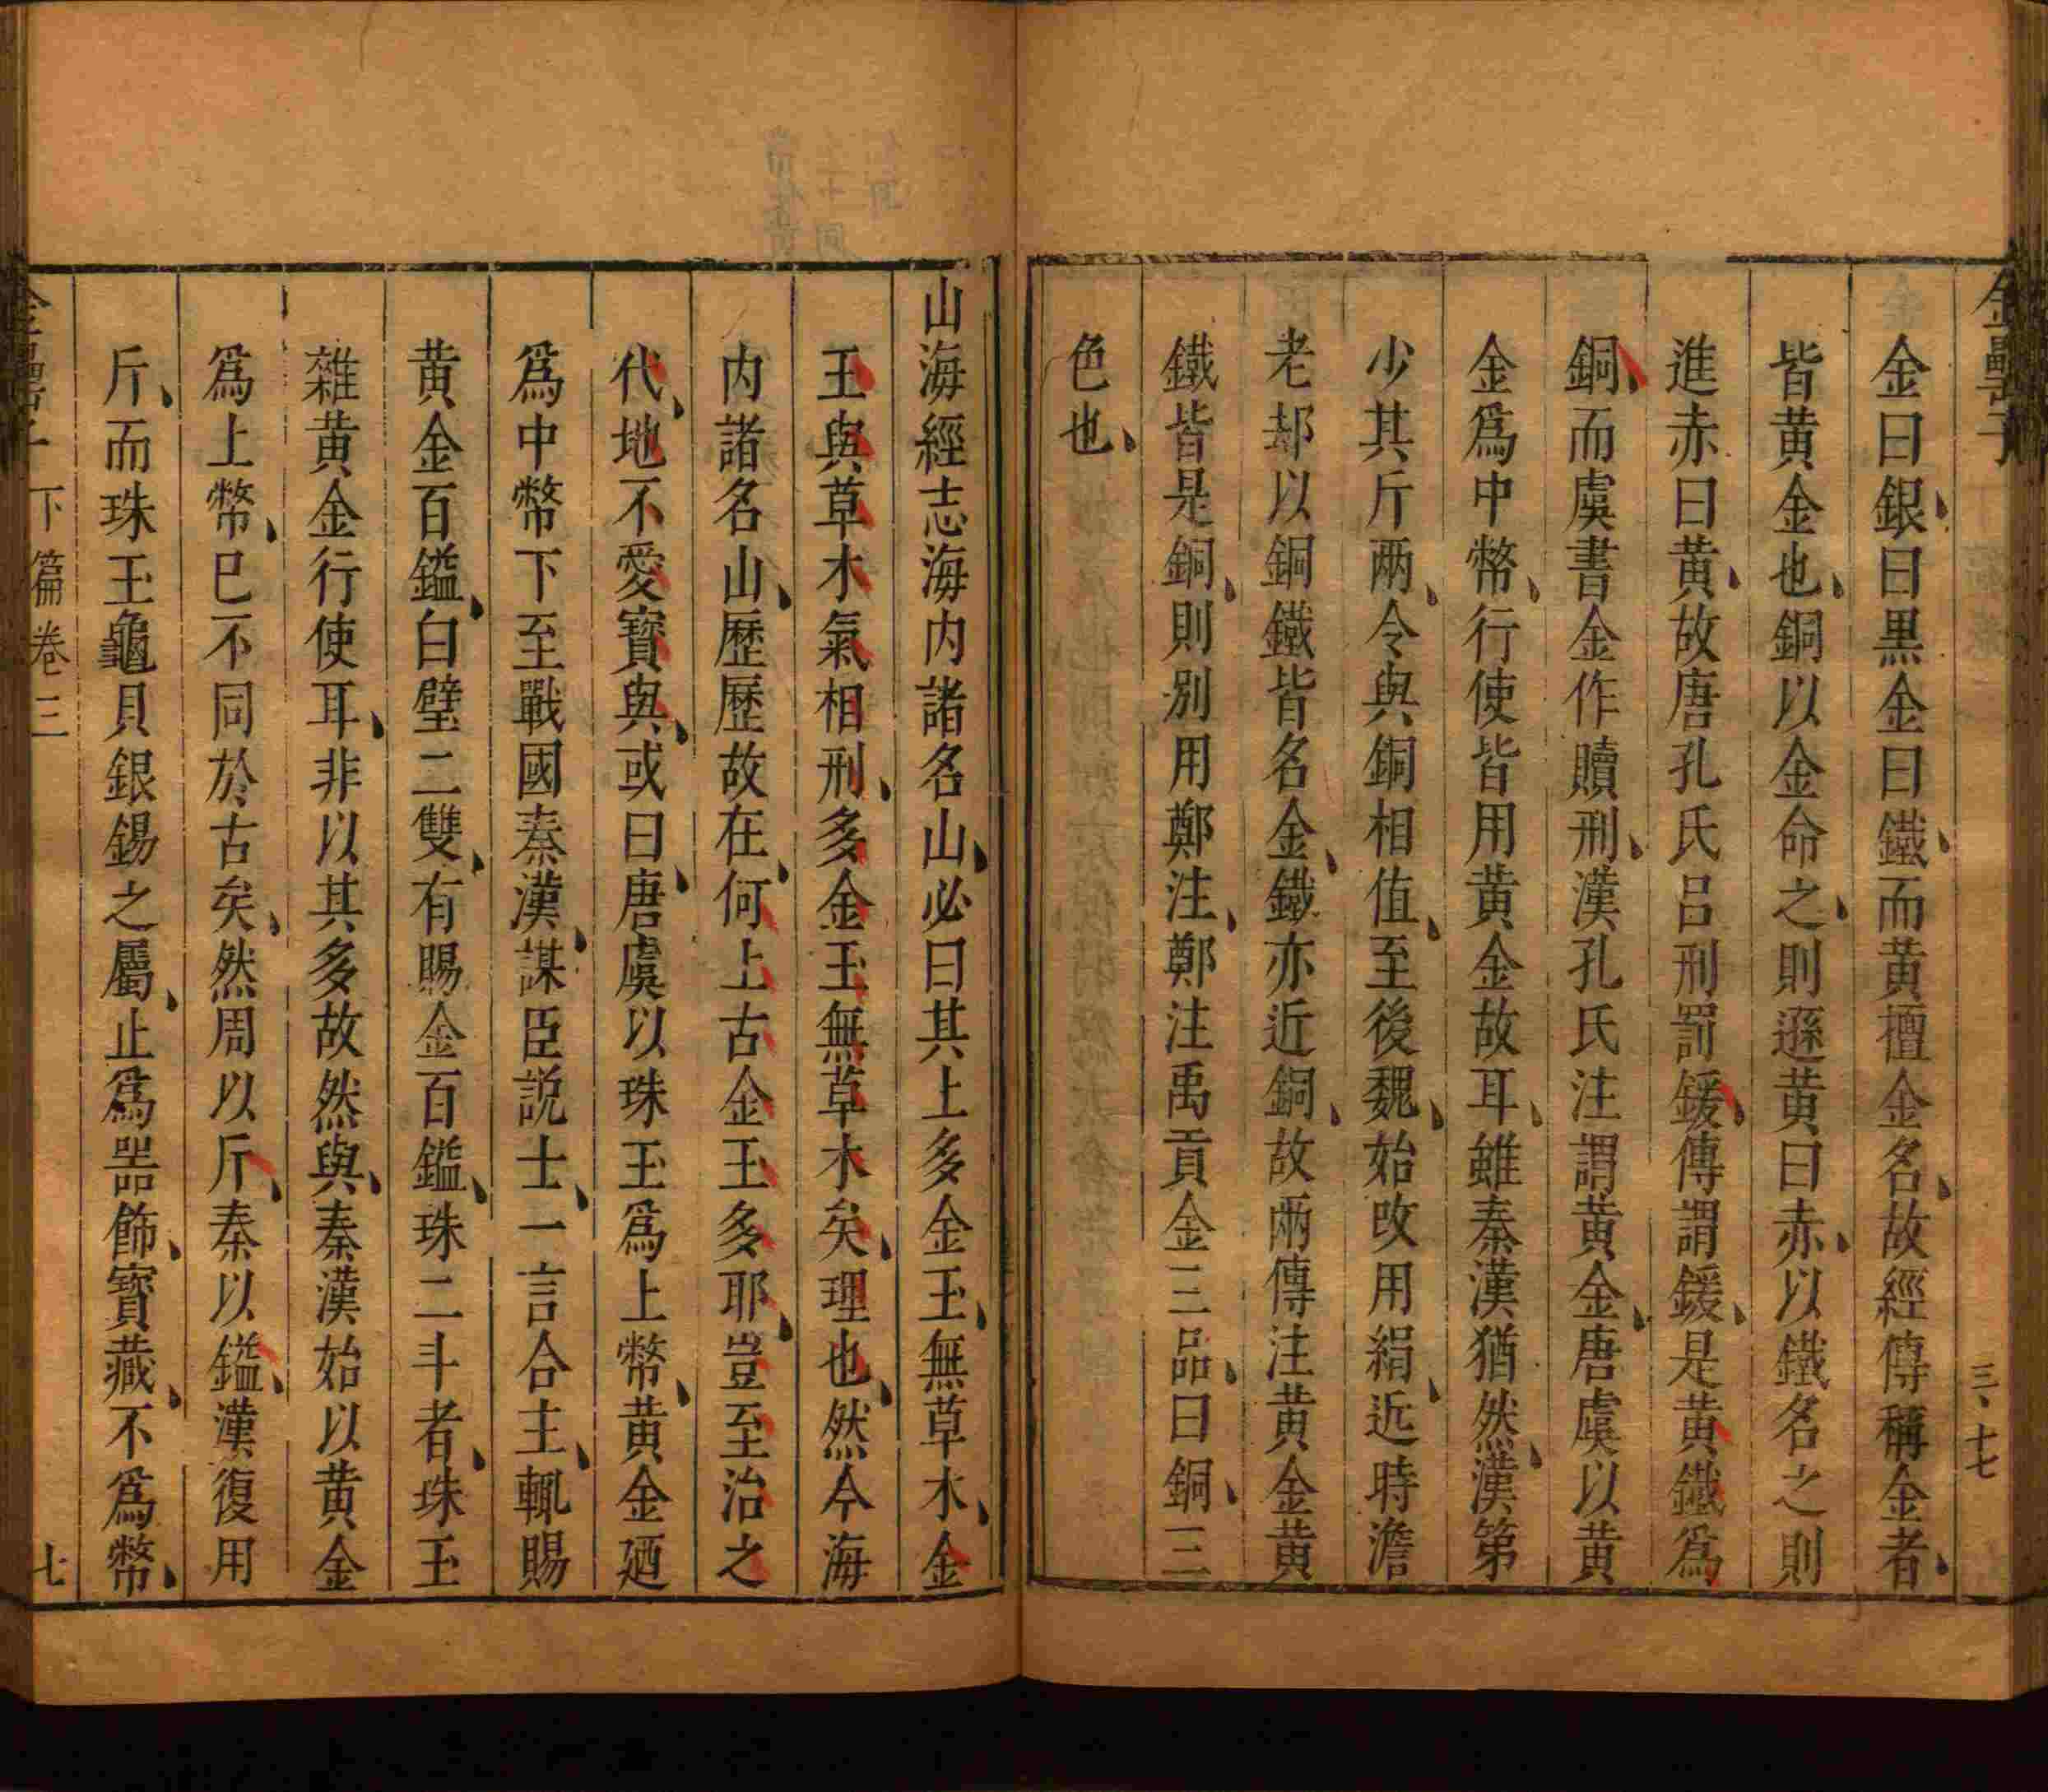 金罍子
三、七
金曰銀、曰黒金曰鐵、而黄擅金名、故經傳稱金者、
皆黄金也、銅以金命之、則遜黄曰赤、以鐵名之則
進赤曰黄、故唐孔氏呂刑罰鍰、傳謂鍰、是黄鐵爲
銅、而虞書金作贖刑、漢孔氏注謂黄金、唐虞以黄
金爲中幣、行使皆用黄金故耳、雖秦漢猶然、漢第
少其斤兩、令與銅相值、至後魏、始改用絹、近時澹
老却以銅鐵皆名金、鐵亦近銅、故兩傳注黄金黄
鐵皆是銅、則别用鄭注、鄭注禹貢金三品、曰銅、三
色也、
山海經志海内諸名山、必曰其上多金玉、無草木、金
玉與草木氣相刑、多金玉無草木矣、理也、然今海
内諸名山、歷歷故在、何上古金玉多耶、豈至治之
代、地不愛寶與、或曰、唐虞以珠玉爲上幣、黄金廼
爲中幣下至戰國秦漢、謀臣説士、一言合主、輒賜
黄金百鎰、白璧二雙、有賜金百鎰、珠二斗者、珠玉
雜黄金行使耳、非以其多故然與、秦漢始以黄金
爲上幣、巳不同於古矣、然周以斤、秦以鎰、漢復用
斤、而珠玉龜貝銀錫之屬、止爲噐飾、寶藏、不爲幣、
金罍子 下篇卷三 七